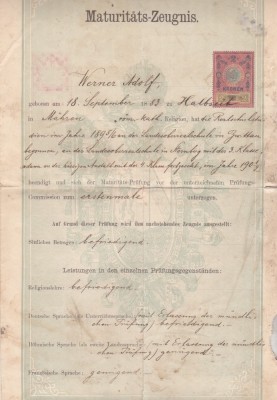 Maturitäts-Zeugnis.
Werner Adolf,
geboren am 18. September 1883 zu
in Mähren, röm. kath. Religion, hat die Realschulstu-
dien im Jahre 1895/6 an der Landesoberrealschule in
begonnen, an der Landesoberrealschule in mit der 3. Klasse
an der Anstalt mit der 4. Klasse fortgesetzt, im Jahre
beendigt und sich der Maturitäts-Prüfung vor der unterzeichneten Prüfungs-
Commission zum erstenmale unterzogen.
Auf Grund dieser Prüfung wird ihm nachstehendes Zeugnis ausgestellt:
Sittliches Betragen: befriedigend.
Leistungen in den einzelnen Prüfungsgegenständen:
Religionslehre: befriedigend.
Deutsche Sprache (als Unterrichtssprache): mit Erlassung der mündli-
chen Prüfung, befriedigend.
Böhmische Sprache (als zweite Landessprache): mit Erlassung der mündli-
chen Prüfung, genügend.
Französische Sprache: genügend.